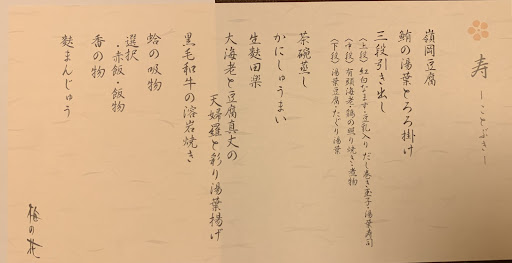 寿
―ことぶき―
嶺岡豆腐
鮪の湯葉とろろ掛け
三段引き出し
〈上段〉紅白なます・豆乳入りだし巻き玉子・湯葉寿司
〈中段〉有頭海老・鶏の照り焼き・煮物
〈下段〉湯葉豆腐・たぐり湯葉
茶碗蒸し
かにしゅうまい
生麩田楽
大海老と豆腐真丈の
天婦羅と彩り湯葉揚げ
黒毛和牛の溶岩焼き
蛤の吸物
選択
・赤飯・飯物
香の物
麩まんじゅう
梅の花